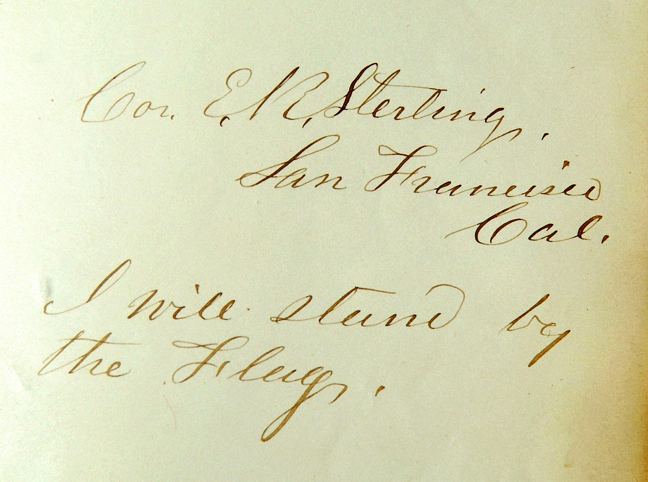 Cor. E. R. Sterling.
San Francisco
Cal.
I will stand by
the Flag.